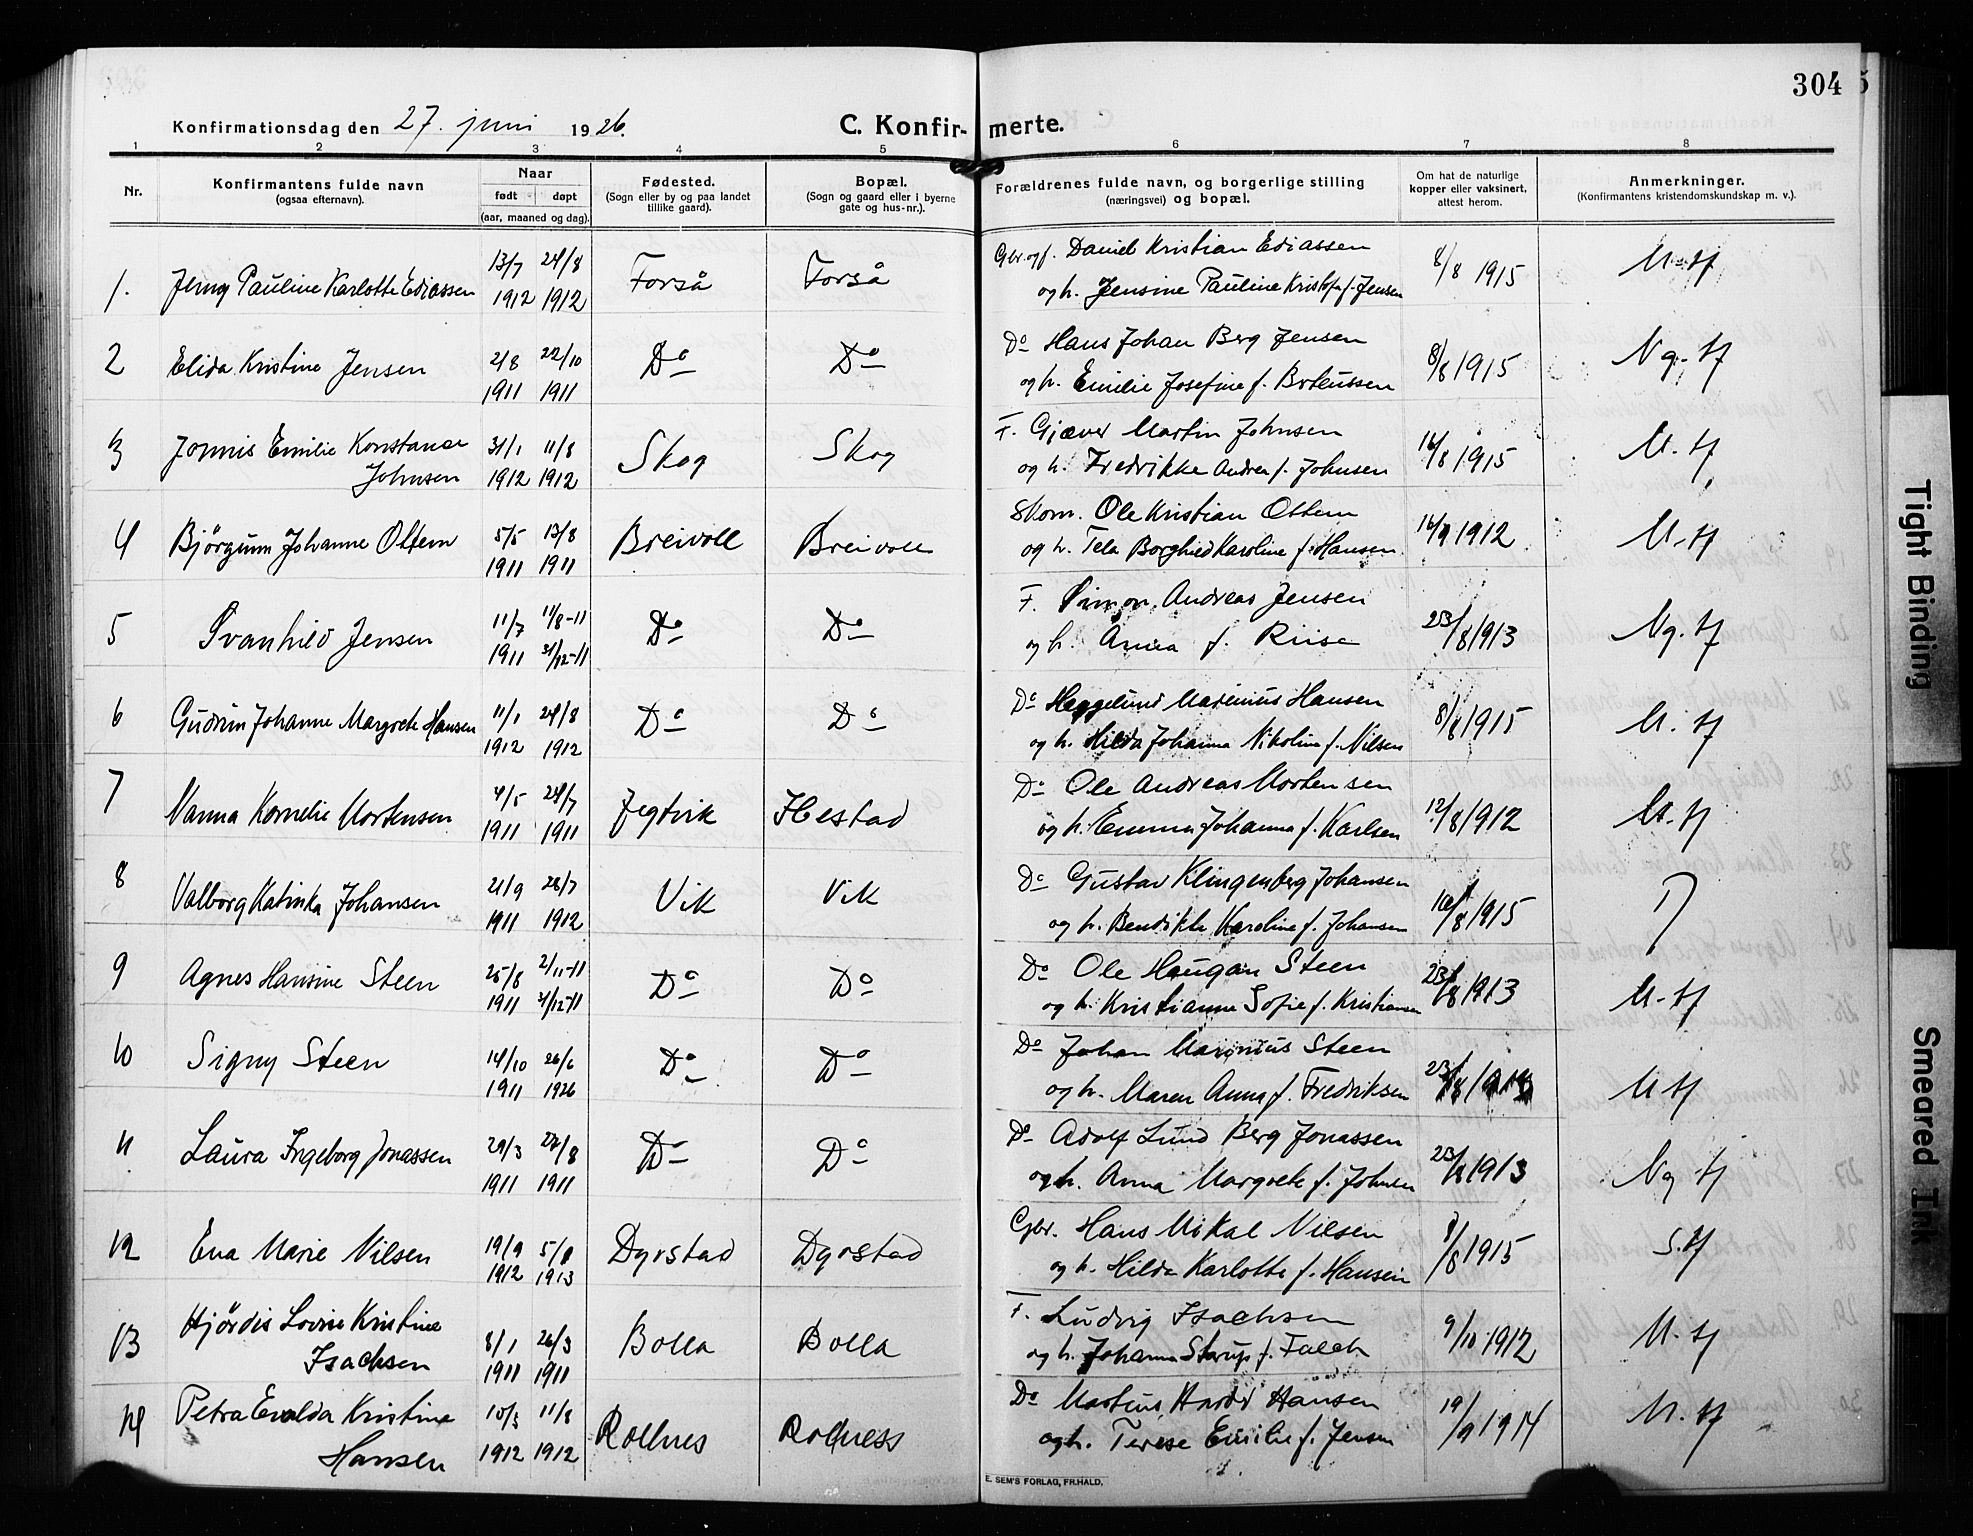 304
Konfirmationsdag den 27. juni 1926.
C. Konfir- merte.
1 2 3 4 5 6 7 8
Nr.
Konfirmantens fulde navn
(ogsaa efternavn).
Naar
født døpt
(aar, maaned og dag).
Fødested.
(Sogn eller by og paa landet
tillike gaard).
Bopæl.
(Sogn og gaard eller i byerne
gate og hus-nr.).
Forældrenes fulde navn, og borgerlige stilling
(næringsvei) og bopæl.
Om hat de naturlige
kopper eller vaksinert,
attest herom.
Anmerkninger.
(Konfirmantens kristendomskundskap m. v.).
1. Jenny Pauline Karlotte Ediassen 13/7 1912 24/8 1912 Forså Forså Gbr. og f. Daniel Kristian Ediassen
og h. Jensine Pauline Kristofa f. Jensen 8/8 1915 M-tf
2 Elida Kristine Jensen 2/8 1911 22/10 1911 Do Do Do Hans Johan Berg Jensen
og h. Emilie Josefine f. Berteussen 8/8 1915 Ng. tf
3 Jonnis Emilie Konstanse
Johnsen 31/1 1912 11/8 1912 Skog Skog F. Gjæver Martin Johnsen
og h. Fredrikke Andrea f. Johnsen 16/8 1915 M. tf
4 Bjørgunn Johanne Ottem 5/5 1911 13/8 1911 Breivoll Breivoll Skom. Ole Kristian Ottem
og h. Tela Borghild Karoline f. Hansen 16/9 1912 M-tf
5 Svanhild Jensen 11/7 1911 11/8-11 31/12-11 Do Do F. Simon Andreas Jensen
og h. Anna f. Riise 23/8 1913 Ng. tf
6 Gudrun Johanne Margrete Hansen 11/1 1912 24/8 1912 Do Do Do Heggelund Marenius Hansen
og h. Hilda Johanna Nikoline f. Nilsen 8/8 1915 M. tf
7 Nanna Kornelie Mortensen 4/5 1911 24/7 1911 Jegtvik Hestad Do Ole Andreas Mortensen
og h. Emma Johanna f. Karlsen 12/8 1912 M. tf
8 Valborg Katinka Johansen 21/9 1911 28/7 1912 Vik Vik Do Gustav Klingenberg Johansen
og h. Bendikte Karoline f. Johansen 16/8 1915
9 Agnes Hansine Steen 25/8 1911 2/11-11 31/12-11 Do Do Do Ole Haugan Steen
og h. Kristianna Sofie f. Kristiansen 23/8 1913 M-tf
10 Signy Steen 14/10 1911 26/6 1926 Do Do Do Johan Marinius Steen
og h. Maren Anna f. Fredriksen 23/8 1913 M tf
11 Laura Ingeborg Jonassen 29/3 1911 27/8 1911 Do Do Do Adolf Lund Berg Jonassen
og h. Anna Margrete f. Johnsen 23/8 1913 Ng tf
12 Ena Marie Nilsen 19/9 1912 5/1 1913 Dyrstad Dyrstad Gbr. Hans Mikal Nilsen
og h. Hilda Karlotte f. Hansen 8/8 1915 S. tf
13 Hjørdis Lovise Kristine
Isachsen 8/1 1911 26/3 1911 Bolla Bolla F. Ludvig Isachsen
og h. Johanna Storup f. Falch 9/10 1912 M. tf
14 Petra Evalda Kristine
Hansen 10/3 1912 11/8 1912 Rollnes Rollness Do Martus Hardd Hansen
og h. Terese Emilie f. Jensen 19/9 1914 M. tf
E. SEM'S FORLAG, FR.HALD.
Tight Binding
Smeared Ink